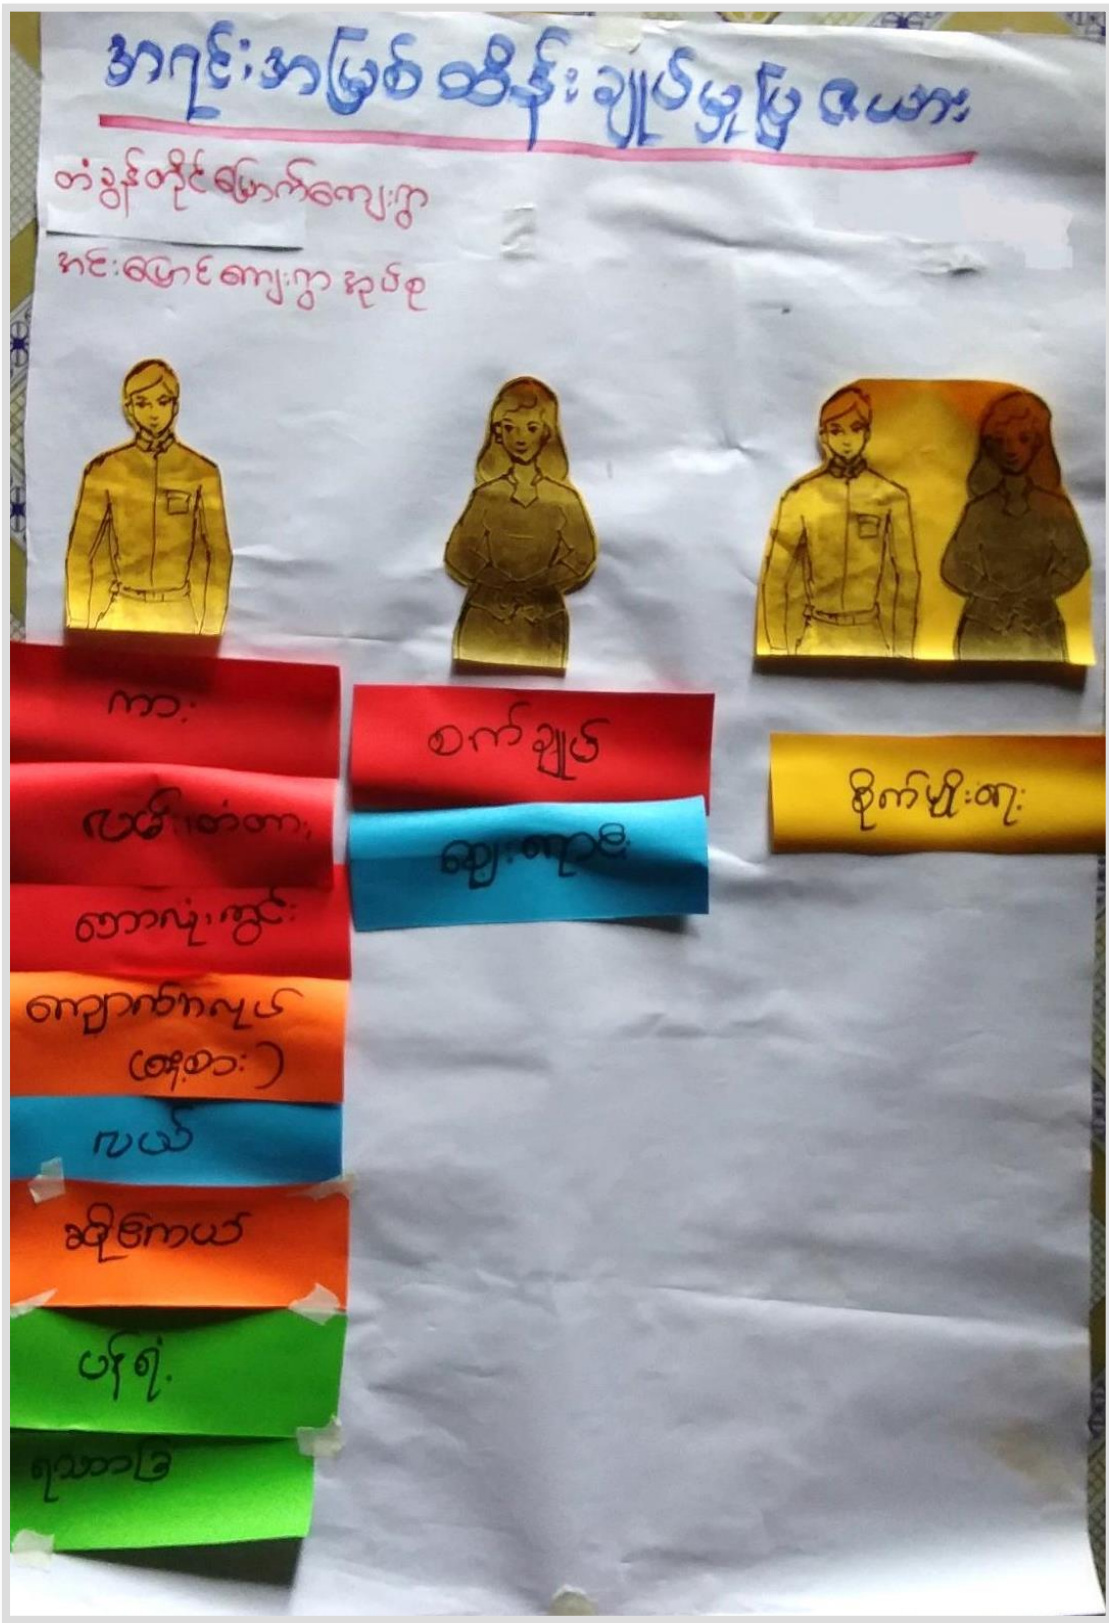 အရင်းအမြစ်ထိန်းချုပ်မှုပြဇယား
တံခွန်တိုင်မြောက်ကျေးရွာ
အင်းမြောင်ကျေးရွာအုပ်စု
ကား
လမ်း၊တံတား
ဘောလုံးကွင်း
ကျောက်အလုပ်
(စနေ့စား)
လယ်
ဆိုင်ကယ်
ပန်ရံ
ရေသာခြ
စက်ချုပ်
ဈေးရောင်း
စိုက်ပျိုးရေး